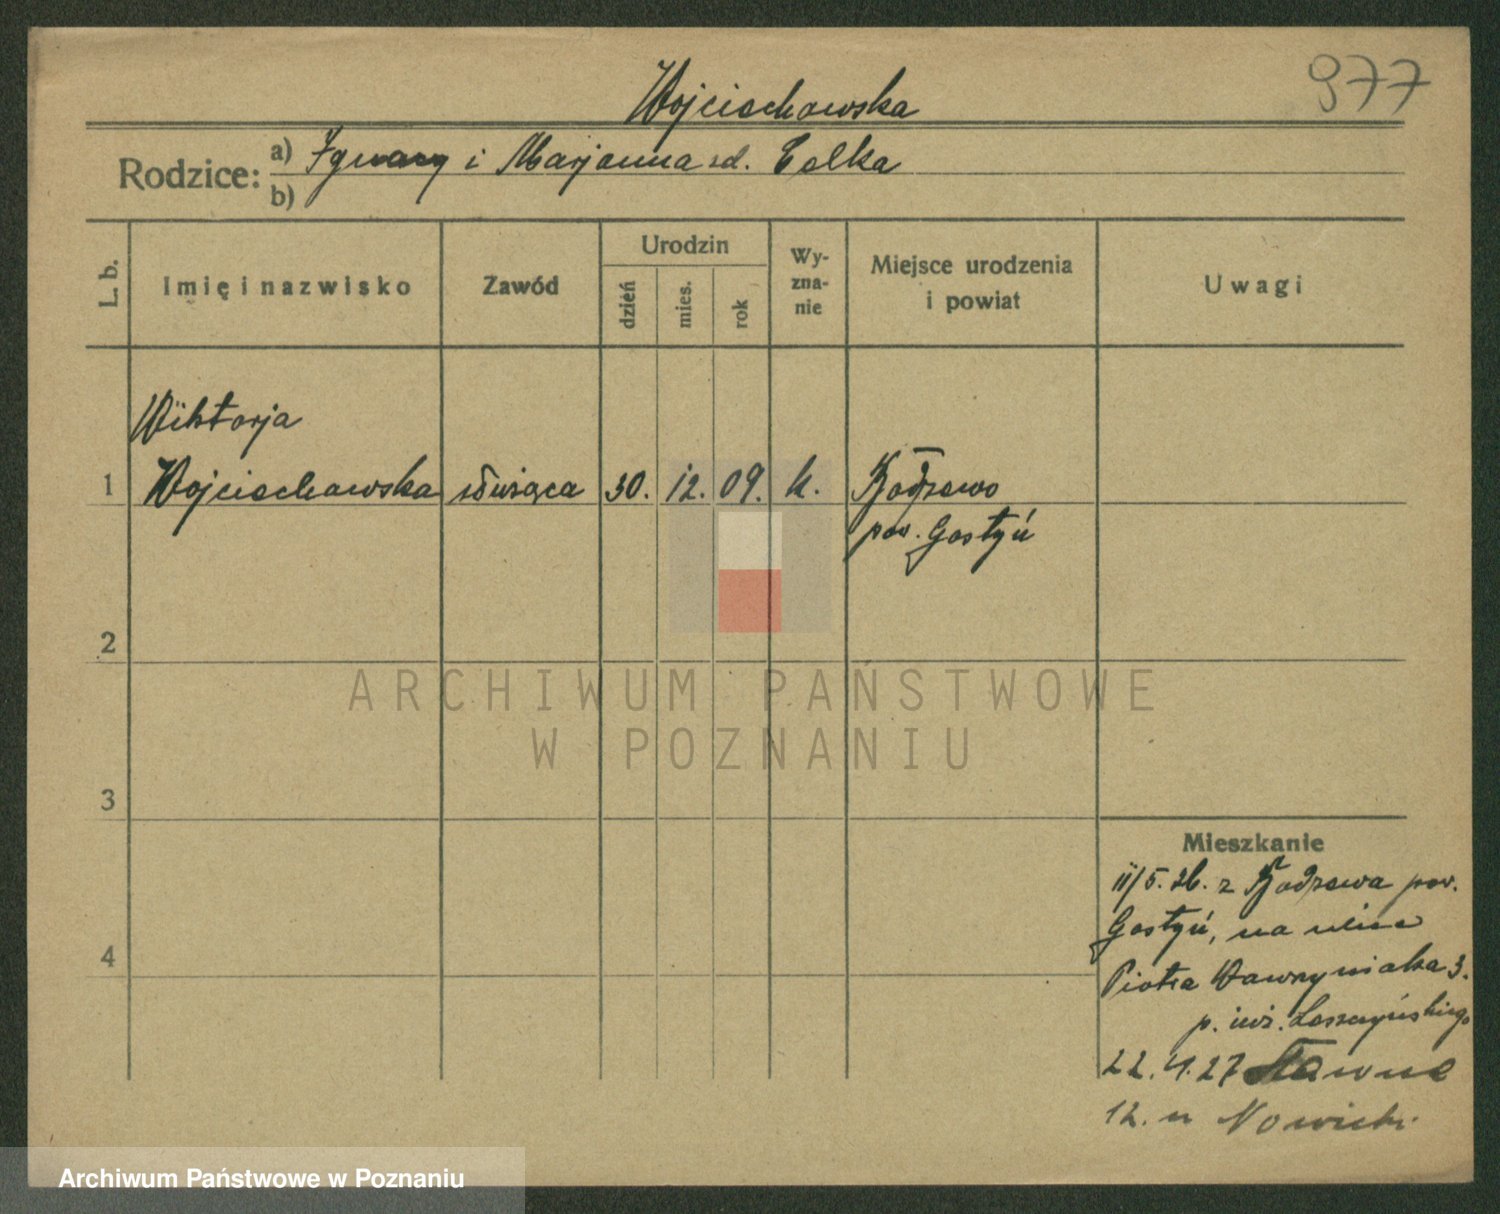 977
Wojciechowska
Rodzice: a) Ignacy i Marjanna zd. Celka
b)
L. b. Imię i nazwisko Zawód Urodzin dzień mies. rok Wy-zna-nie Miejsce urodzenia i powiat Uwagi
Wiktorja
1 Wojciechowska służąca 30. 12. 09. k. Bodzewo
pow. Gostyń
2
ARCHIWUM PAŃSTWOWE
W POZNANIU
3
Mieszkanie
11/5. 26. z Bodzewa pow.
Gostyń, na ulice
4
Piotra Wawrzyniaka 3.
p. inż. Leszczyńskiego
22. 4. 27
12. u Nowicki
Archiwum Państwowe w Poznaniu